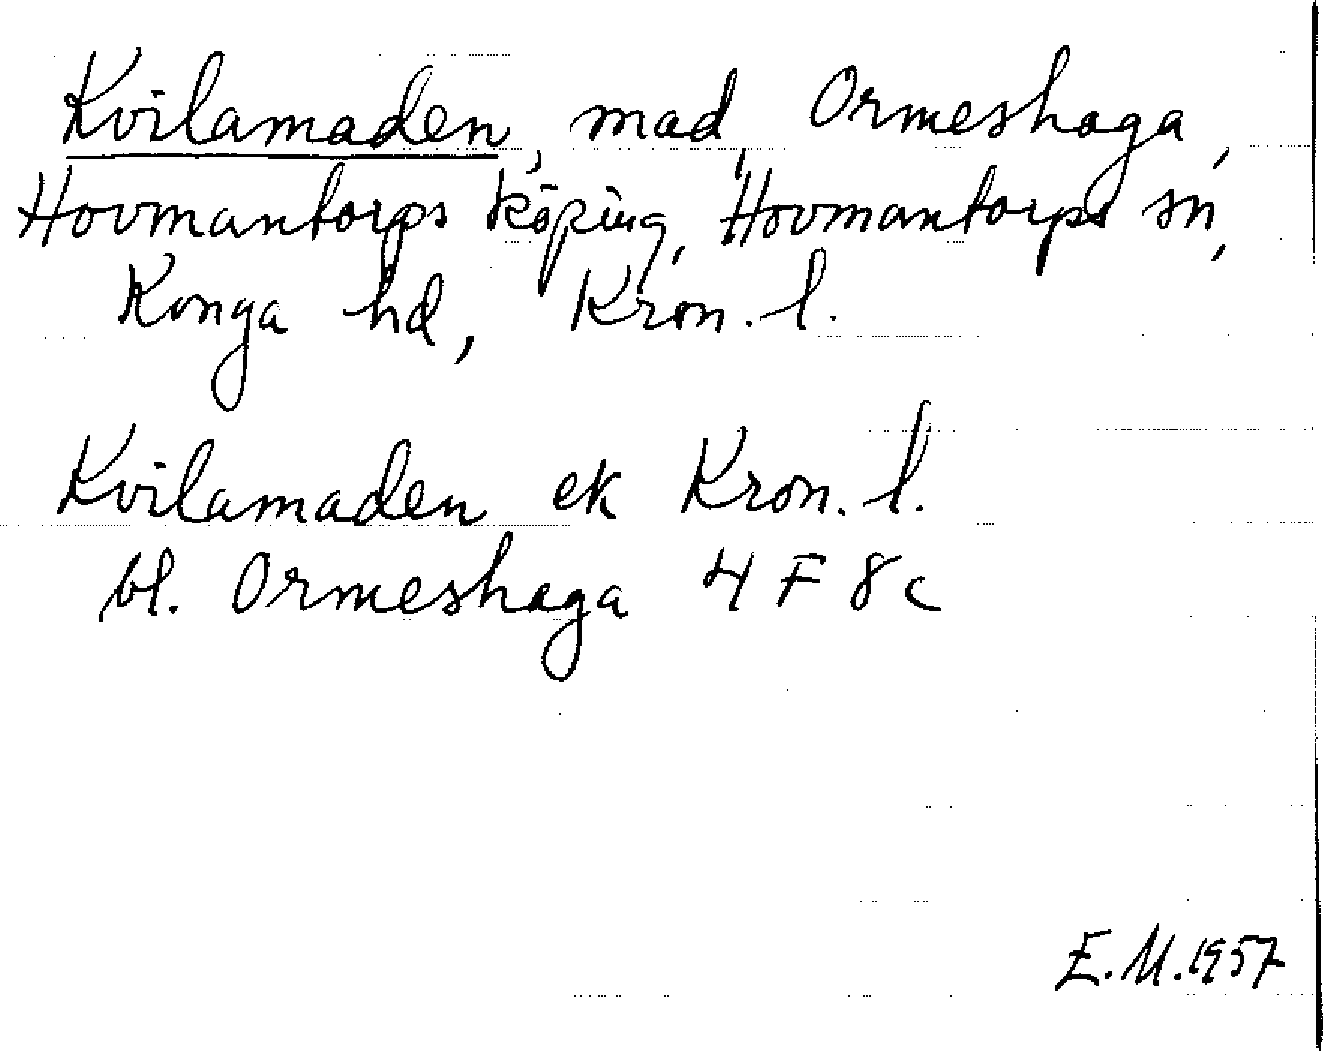 Kvilamaden, mad, Ormeshaga,
Hovmantorps köping, Hovmantorps sn,
Konga hd, Kron. l.
Kvilamaden ek Kron. l.
bl. Ormeshaga 4 F 8 c
E.M.1957